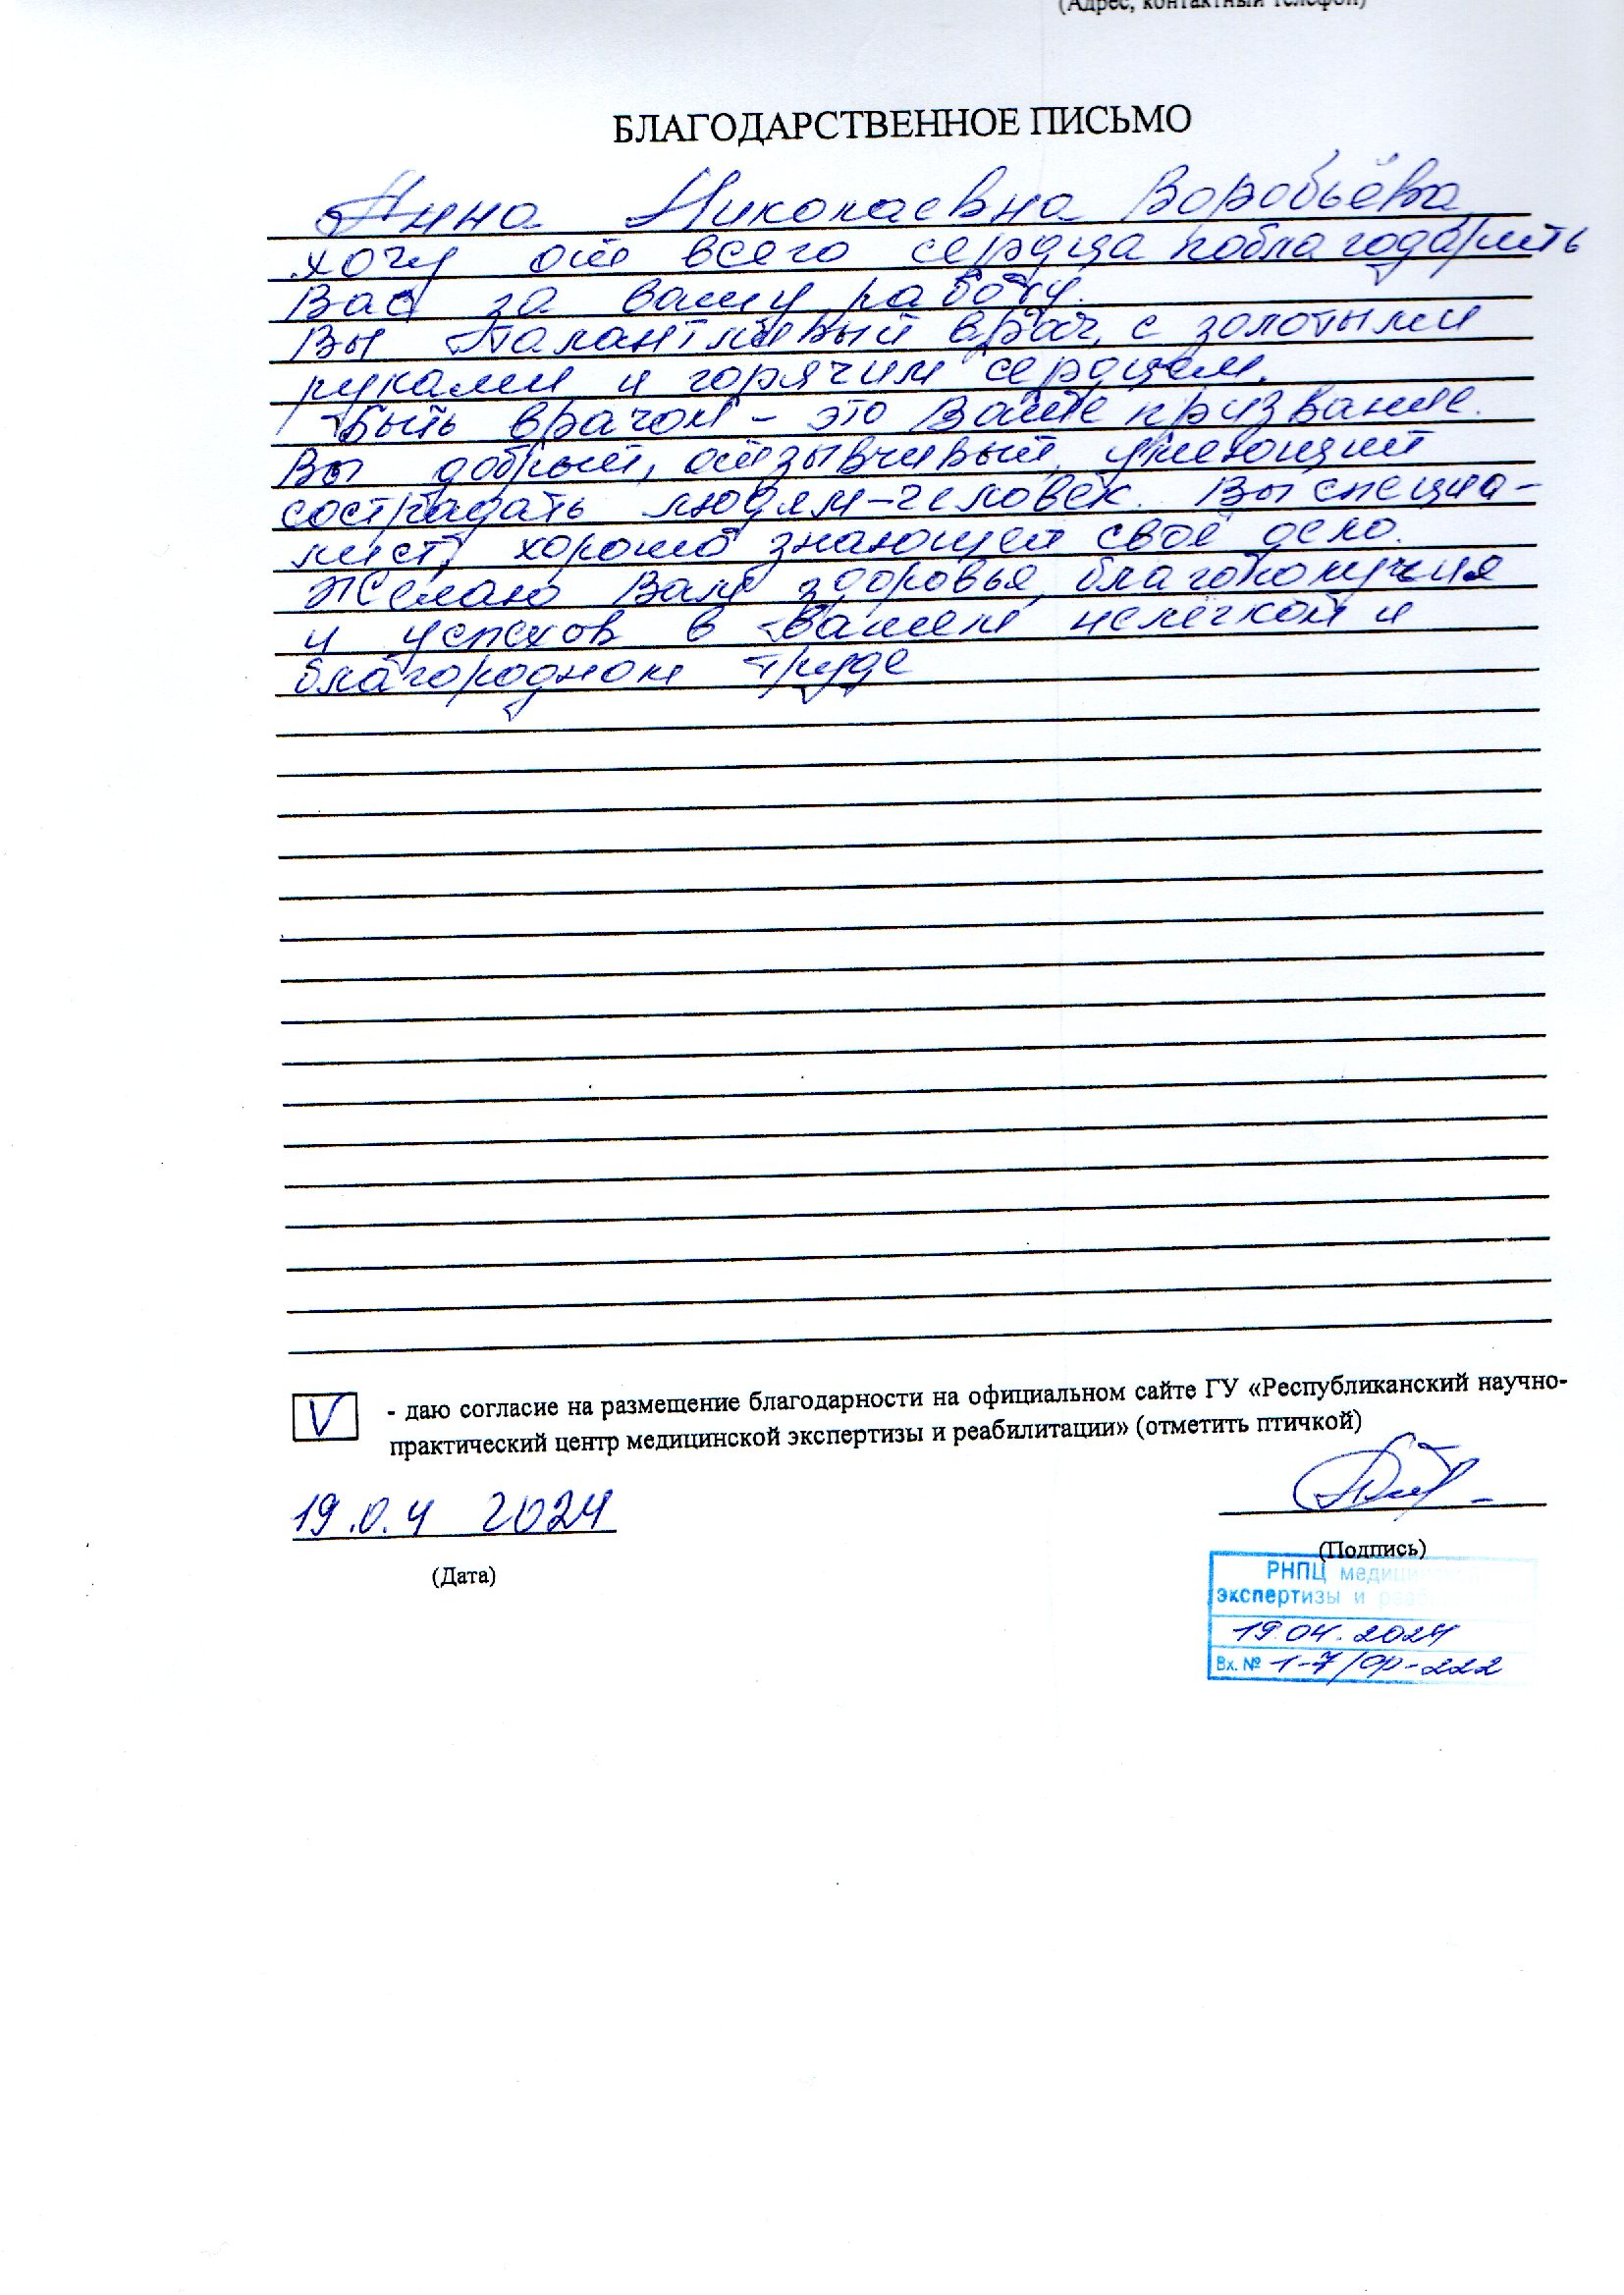 (Адрес, контактный телефон)
БЛАГОДАРСТВЕННОЕ ПИСЬМО
Анна Николаевна Воробьёва
хочу от всего сердца поблагодарить
Вас за вашу работу.
Вы талантливый врач, с золотыми
руками и горячим сердцем.
Быть врачом - это Ваше призвание.
Вы добрый, отзывчивый, умеющий
сострадать людям-человек. Вы специа-
лист, хорошо знающей своё дело.
Желаю Вам здоровья, благополучия
и успехов в вашем нелегкой и
благородном труде
V
- даю согласие на размещение благодарности на официальном сайте ГУ «Республиканский научно-
практический центр медицинской экспертизы и реабилитации» (отметить птичкой)
19.0.4 2024
(Дата)
(Подпись)
РНПЦ медицинской
экспертизы и реабилитации
19.04.2024
Вх. № 1-7/ор-222